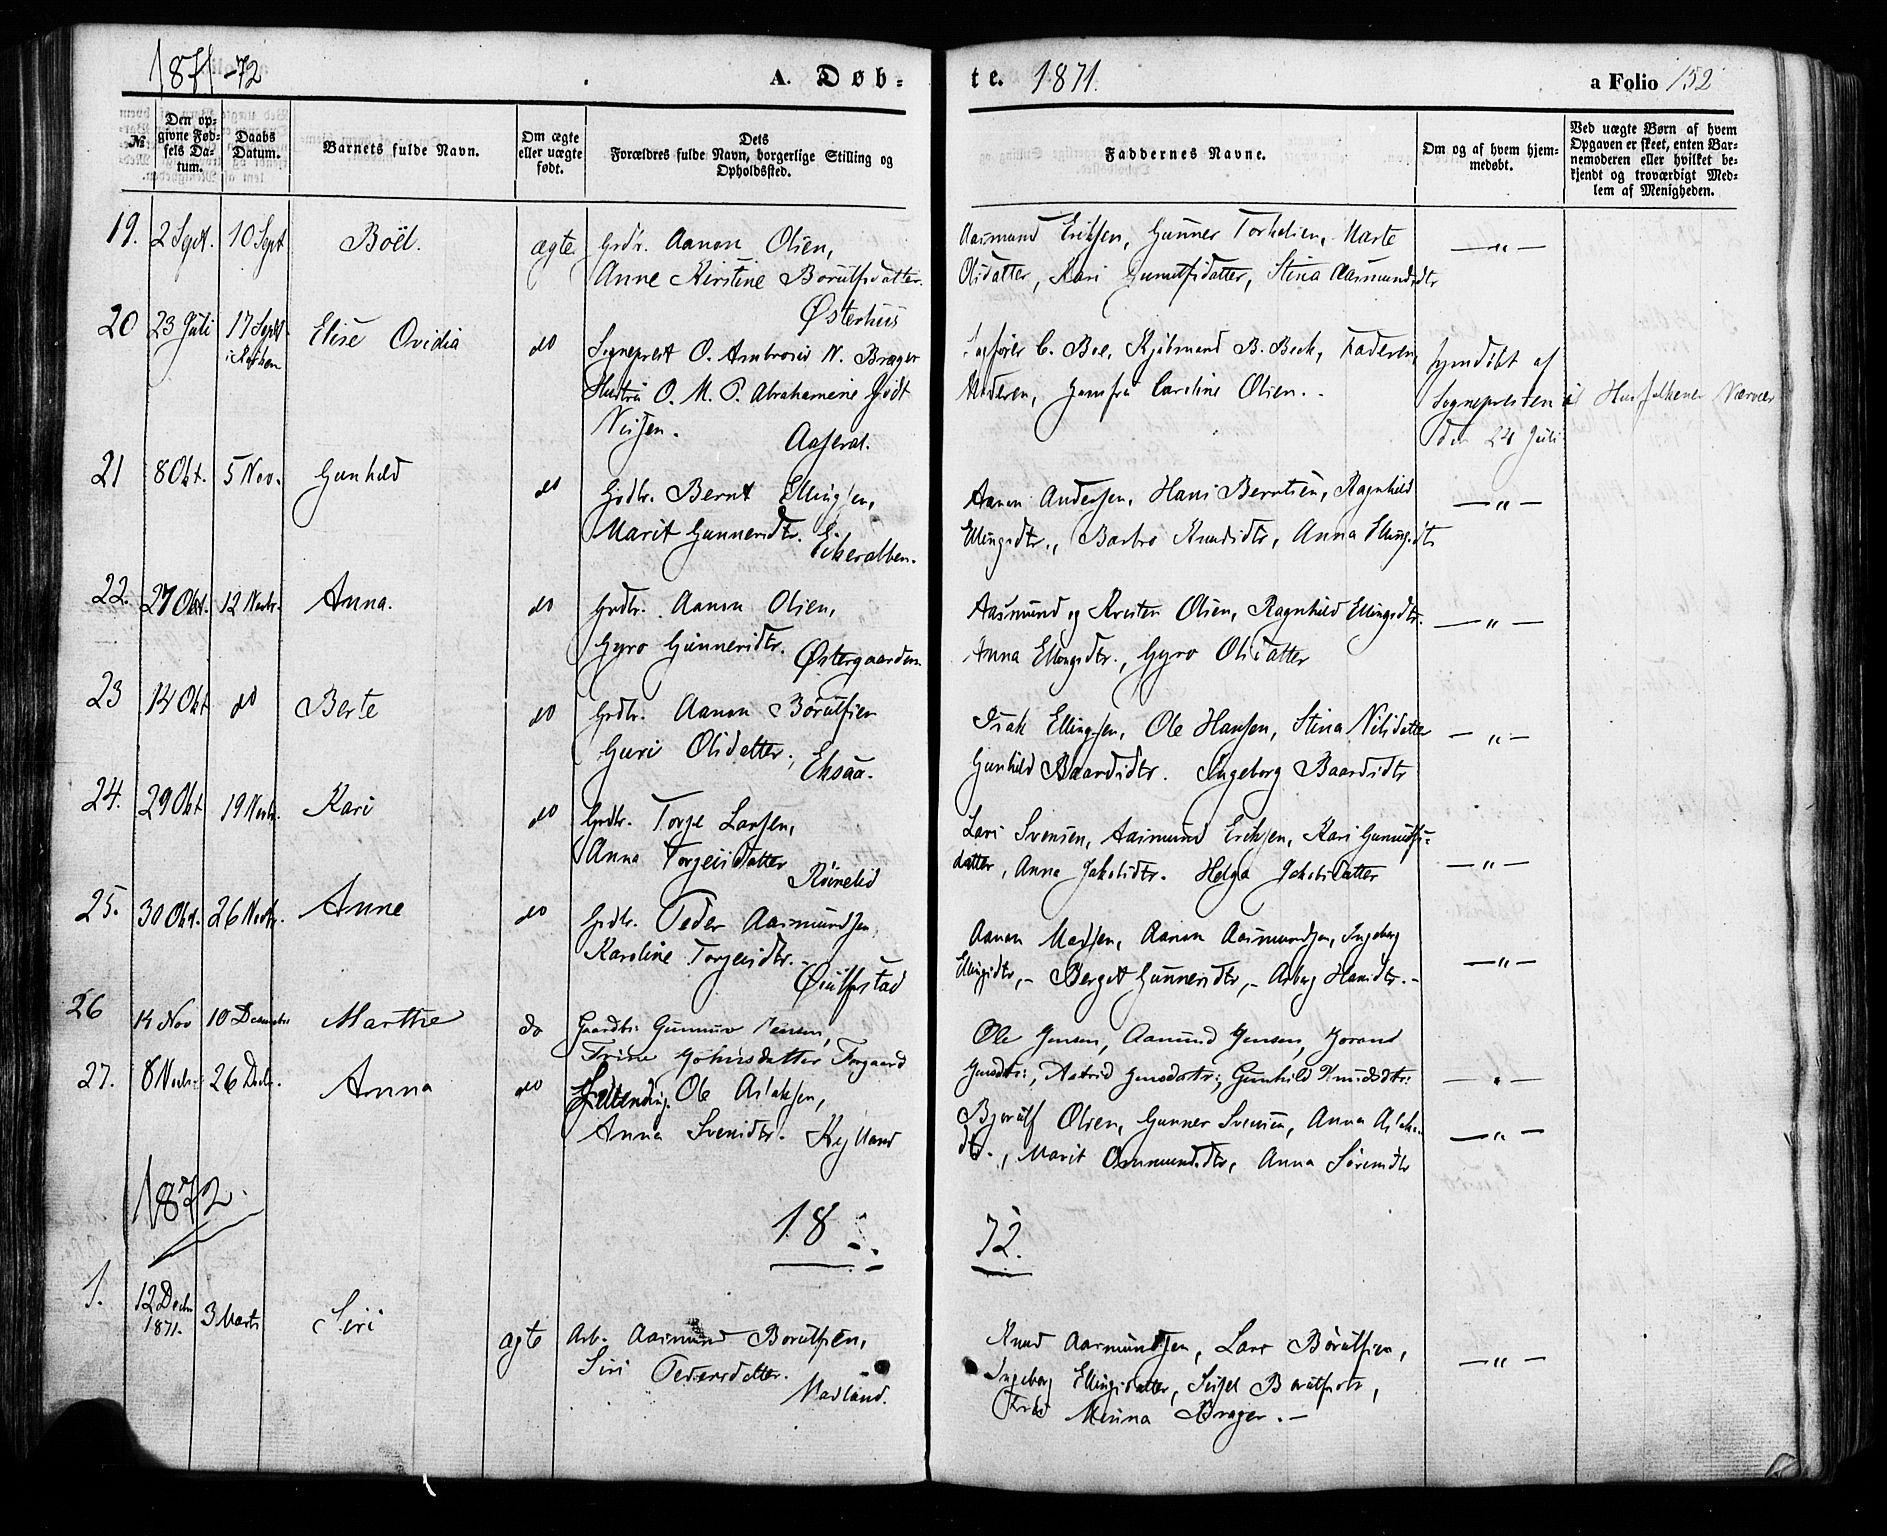 1871-72 A. Døb- te. 1871. a Folio 152
№
Den op-
givne Fød-
sels Da-
tum.
Daabs
Datum.
Barnets fulde Navn.
Om ægte
eller uægte
født.
Dets
Forældres fulde Navn, borgerlige Stilling og
Opholdssted.
Faddernes Navne.
Om og af hvem hjem-
medøbt.
Ved uægte Børn af hvem
Opgaven er skeet, enten Bar-
nemoderen eller hvilket be-
kjendt og troværdigt Med-
lem af Menigheden.
19. 2 Sept. 10 Sept Boël. ægte Grdbr. Aanon Olsen,
Anne Kirstine Borulfsdatter.
Østerhus
Aasmund Eriksen, Gunner Torkelsen, Marte
Olsdatter, Kari Gunulfsdatter, Stina Aasmundsdtr
— „ —
20 23 Juli 17 Septbr. Elise Ovidia do Sogneprest O. Ambrosius N. Brager
Hustru O. M. P. Abrahamine Gidt
Nissen.
Aaseral.
C. Boe, Kjøbmand B. Beck, Faderen,
Moderen, Jomfru Caroline Olsen.
hjemdøbt af
Sognepresten i Husfolkenes Nærvær
den 24 Juli
21 8 Okt. 5 Nov. Gunhild do Grdbr. Bernt Ellingsen,
Marit Gunnersdtr.
Eikerabben.
Aanon Andersen, Hans Berntsen, Ragnhild
Ellingsdtr., Barbro Knudsdtr, Anna Ellingsdtr
— „ —
22. 27 Okt. 12 Novbr. Anna. do Grdbr. Aanon Olsen,
Gyro Gunnersdtr. Østergaarden.
Aasmund og Kristen Olsen, Ragnhild Ellingsdtr.
Anna Ellingsdtr., Gyro Olsdatter
— „ —
23 14 Okt do Berte do Grdbr. Aanon Børulfsen
Guri Olsdatter, Eksaa.
Isak Ellingsen, Ole Hansen, Stina Nilsdatter
Gunhild Baardsdtr. Ingeborg Baardsdtr
— „ —
24. 29 Okt 19 Novbr. Kari do Grdbr. Torje Larsen,
Anna Torgeirsdatter Røinelid
Lars Svensen, Aasmund Eriksen, Kari Gunulfs-
datter, Anna Jakobsdtr. Helga Jakobsdatter
— „ —
25. 30 Okt. 26 Novbr. Anne do Grdbr. Peder Aasmundsen,
Karoline Torgeirsdtr.
Øiulfsstad
Aanon Madsen, Aanon Aasmundsen, Ingeborg
Ellingsdtr, - Berget Gunnersdtr, - Asborg Hansdtr. -
— „ —
26 14 Nov 10 December Marthe do Gaardbr: Gunnuv Jensen,
Trine Johnsdatter Forgaard
Ole Jensen, Aamund Jensen, Jorand
Jensdtr:, Astrid Jensdatr:, Gunhild Knudsdtr:
— „ —
27. 8 Novbr. 26 Decbr. Anna do Ole Aslaksen,
Anna Svensdtr. Kylland
Bjorulf Olsen, Gunner Svensen, Anna Aslaks-
dtr., Marit Ommundsdtr, Anna Sørensdtr
— „ —
1872.
18 72.
1. 12 Decbr
1871. 3 Marts Siri ægte Arb. Aasmund Borulfsen,
Siri Pedersdatter.
Madland.
Knud Aasmundsen, Lars Børulfsen,
Ingeborg Ellingsdatter, Sissel Børulfsdtr,
Minna Brager. -
— „ —